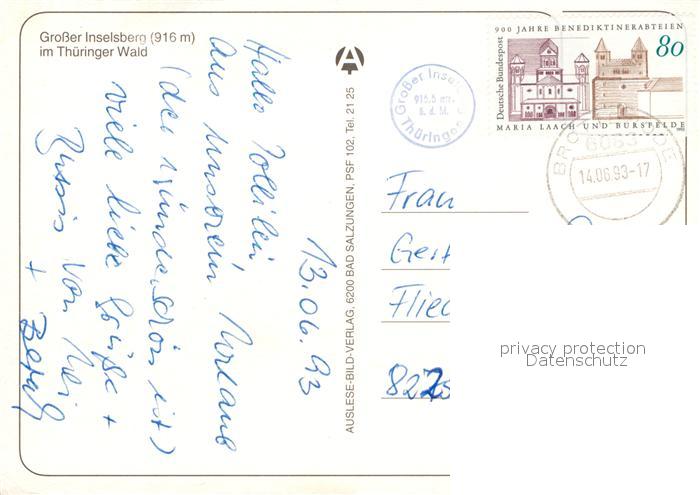 Großer Inselsberg (916 m)
im Thüringer Wald
13.06.93
Hallo
aus unserem Urlaub
(der wunderschön ist)
viele liebe Grüße +
Bussis von
+
AUSLESE-BILD-VERLAG, 6200 BAD SALZUNGEN, PSF 102, Tel. 21 25
Großer Insel
916,5 m
ü. d. M.
Thüringen
900 JAHRE BENEDIKTINERABTEIEN
Deutsche Bundespost
80
MARIA LAACH UND BURSFELDE
14.06.93-17
Frau
Flied
privacy protection
Datenschutz